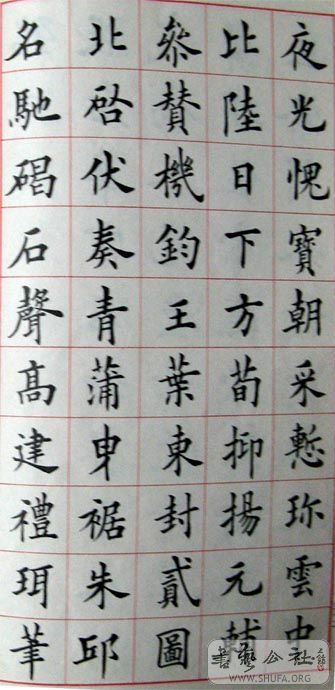 夜光愧寶朝采慙珎雲
比陸日下方荀抑揚元
叅賛機鈞王葉東封貳圖
北啓伏奏青蒲曳裾朱邸
名馳碣石聲高建禮珥筆
書藝公社
WWW.SHUFA.ORG